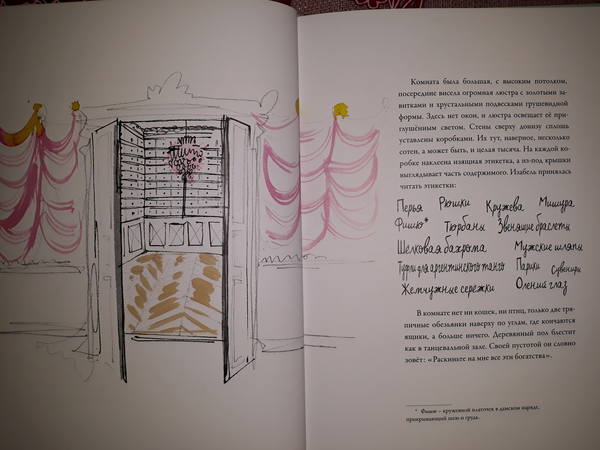 Комната была большая, с высоким потолком,
посередине висела огромная люстра с золотыми за-
витками и хрустальными подвесками грушевидной
формы. Здесь нет окон, и люстра освещает её при-
глушённым светом. Стены сверху донизу сплошь
уставлены коробками. Их тут, наверное, несколько
сотен, а может быть, и целая тысяча. На каждой ко-
робке наклеена изящная этикетка, а из-под крышки
выглядывает часть содержимого. Изабель принялась
читать этикетки:
Перья Рюшки Кружева Мишура
Фишю* Тюрбаны Звенящие браслеты
Шёлковая бахрома Мужские шляпы
Туфли для аргентинского танго Парики Сувениры
Жемчужные серёжки Олений глаз
В комнате нет ни кошек, ни птиц, только две тря-
пичные обезьянки наверху по углам, где кончаются
ящики, а больше ничего. Деревянный пол блестит
как в танцевальной зале. Своей пустотой он словно
зовёт: «Раскиньте на мне все эти богатства».
* Фишю – кружевной платочек в дамском наряде,
прикрывающий шею и грудь.